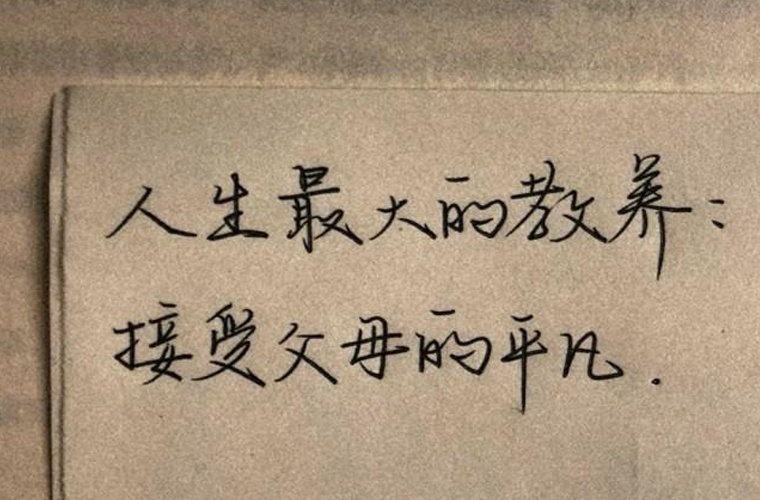 人生最大的教养：
接受父母的平凡.